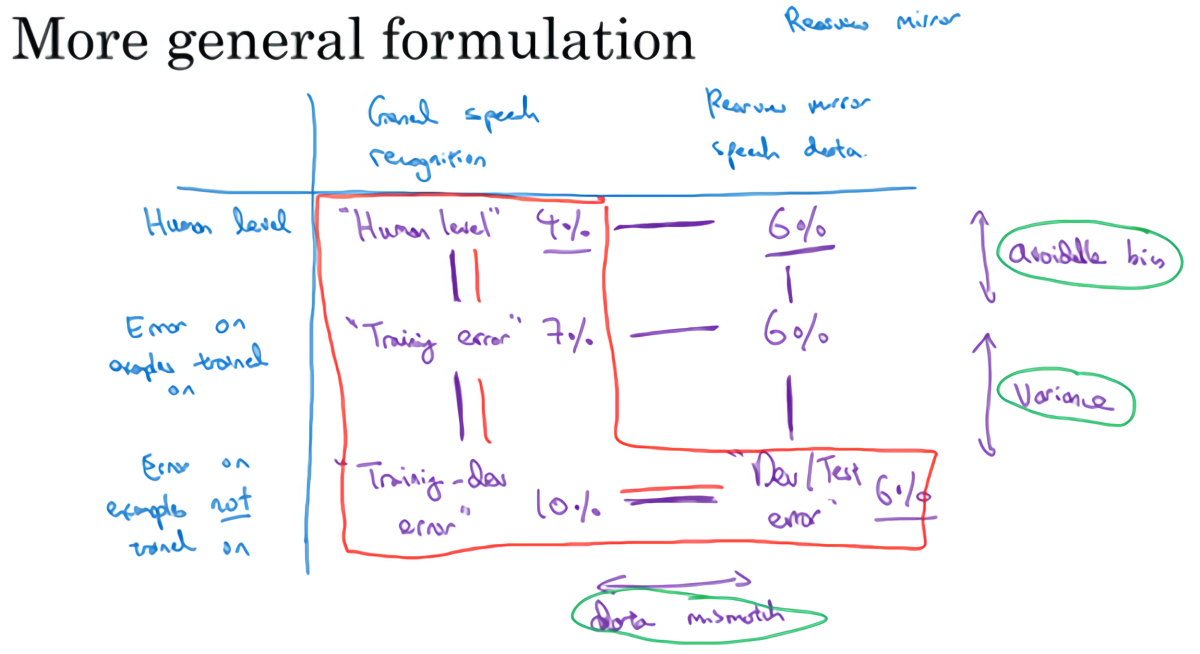 More general formulation
Rearview mirror
General speech
recognition
Rearview mirror
speech data.
Human level
"Human level" 4%
6%
avoidable bias
Error on
examples trained
on
"Training error" 7%
6%
Variance
Error on
examples not
trained on
"Training-dev
error"
10%
"Dev/Test
error"
6%
Data mismatch